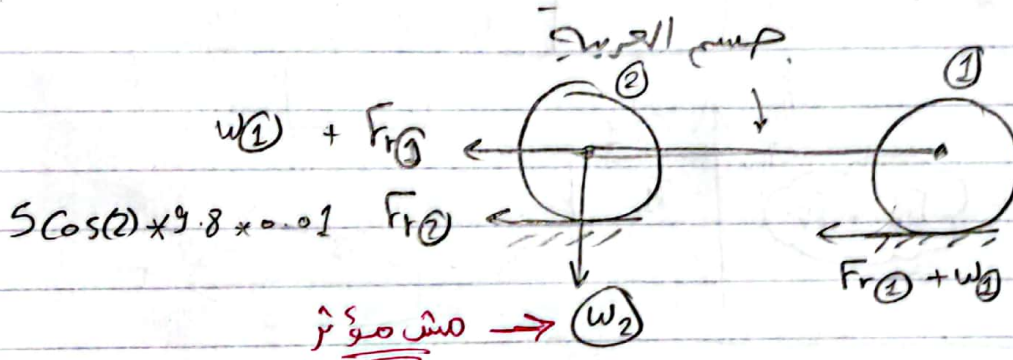 جسم العربية
② ①
W① + Fr①
5 Cos(2) * 9.8 * 0.01 Fr②
Fr① + W①
مش مؤثر → W₂